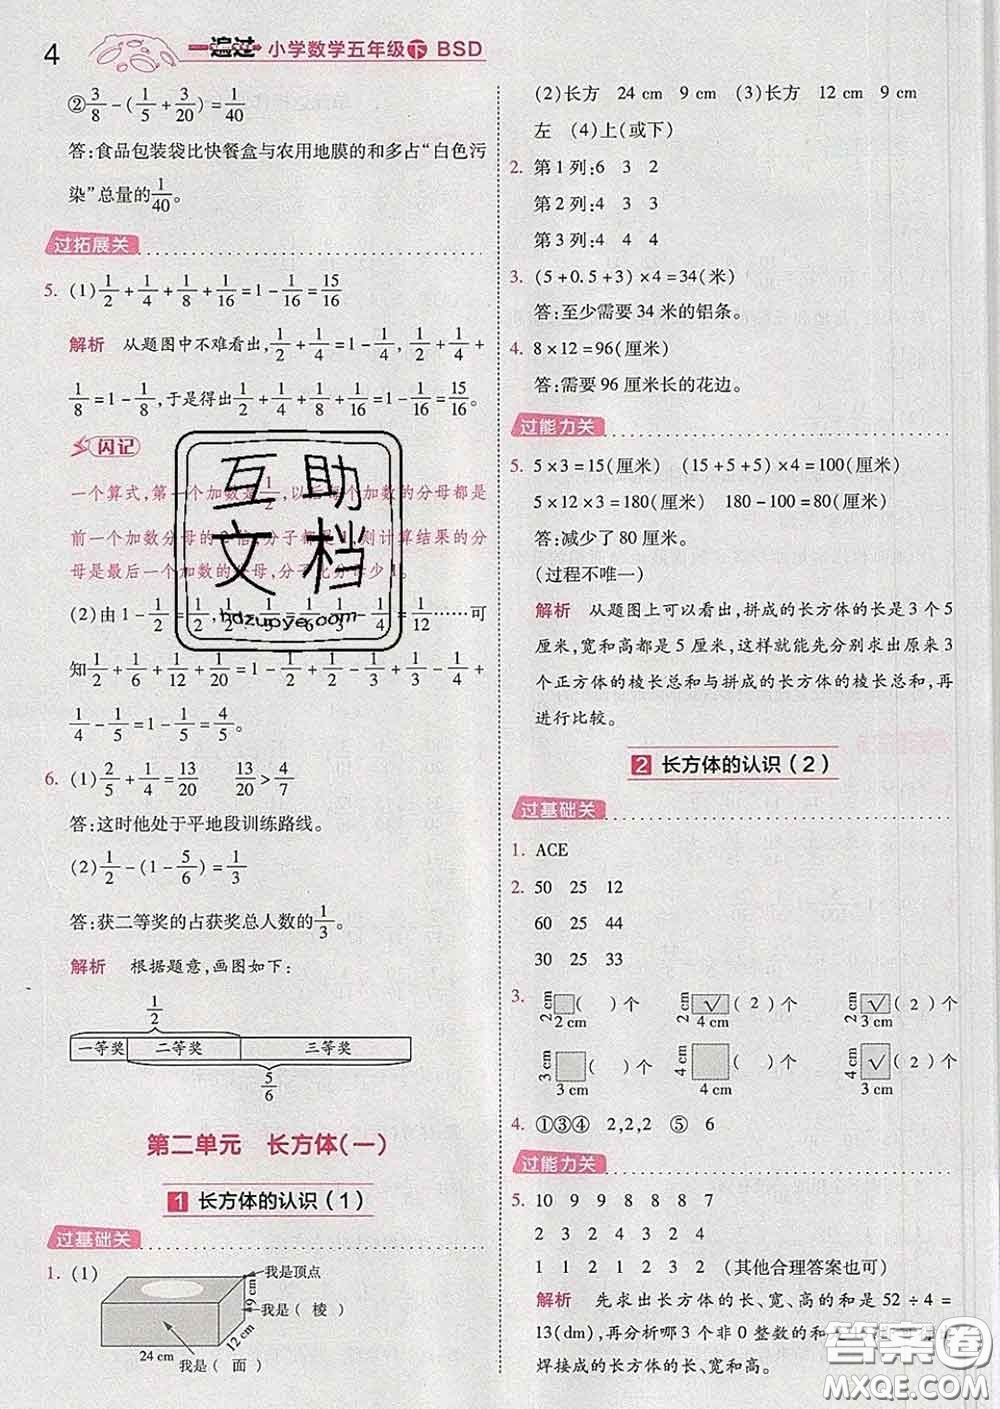 4
一遍过 小学数学五年级 下 BSD
②3/8-(1/5+3/20)=1/40
答:食品包装袋比快餐盒与农用地膜的和多占“白色污
染”总量的1/40。
过拓展关
5. (1)1/2+1/4+1/8+1/16=1-1/16=15/16
解析 从题图中不难看出,1/2+1/4=1-1/4, 1/2+1/4+
1/8=1-1/8,于是得出1/2+1/4+1/8+1/16=1-1/16=15/16。
闪记
一个算式,第一个加数是1/2,以后每个加数的分母都是
前一个加数分母的2倍,分子都是1,则计算结果的分母
是最后一个加数的分母,分子比分母少1。
(2)由1-1/2=1/2 1/6 1/3-1/4=1/12……可
知1/2+1/6+1/12+1/20=1-
1/4-1/5=1-1/5=4/5。
6. (1)2/5+1/4=13/20 13/20>4/7
答:这时他处于平地段训练路线。
(2)1/2-(1-5/6)=1/3
答:获二等奖的占获奖总人数的1/3。
解析 根据题意,画图如下:
1/2
一等奖 二等奖 三等奖
5/6
第二单元 长方体(一)
1 长方体的认识(1)
过基础关
1. (1)
我是顶点
9 cm
我是( 棱 )
12 cm
24 cm 我是( 面 )
(2)长方 24 cm 9 cm (3)长方 12 cm 9 cm
左 (4)上(或下)
2. 第1列:6 3 2
第2列:4 3 3
第3列:4 4 4
3. (5+0.5+3)×4=34(米)
答:至少需要34米的铝条。
4. 8×12=96(厘米)
答:需要96厘米长的花边。
过能力关
5. 5×3=15(厘米) (15+5+5)×4=100(厘米)
5×12×3=180(厘米) 180-100=80(厘米)
答:减少了80厘米。
(过程不唯一)
解析 从题图上可以看出,拼成的长方体的长是3个5
厘米,宽和高都是5厘米,这样就能先分别求出原来3
个正方体的棱长总和与拼成的长方体的棱长总和,再
进行比较。
2 长方体的认识(2)
过基础关
1. ACE
2. 50 25 12
60 25 44
30 25 33
3. 2 cm ( )个 2 cm √ (2)个 2 cm √ (2)个
2 cm 4 cm 3 cm
3 cm ( )个 4 cm ( )个 4 cm √ (2)个
3 cm 4 cm 3 cm
4. ①③④ 2,2,2 ⑤ 6
过能力关
5. 10 9 9 8 8 8 7
2 3 2 4 3 2 4
1 1 2 1 2 3 2 (其他合理答案也可)
解析 先求出长方体的长、宽、高的和是52÷4=
13(dm),再分析哪3个非0整数的和
焊接成的长方体的长、宽和高。
互助
文档
.hdzuoye.com
答案圈
MXQE.COM